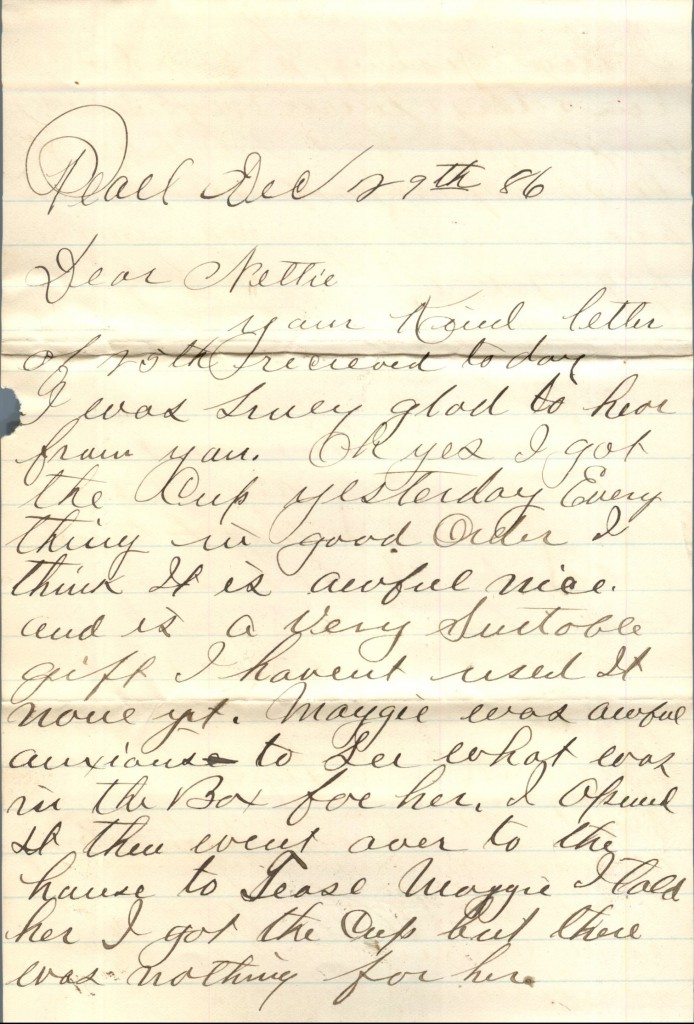 Pearl Dec 29th 86
Dear Nettie
your Kind letter
of 25th recieved to day
I was Surey glad to hear
from you. Oh yes I got
the Cup yesterday Every
thing in good Order I
think It is awful nice.
and is a Very Suitable
gift I havent used It
none yet. Maggie was awful
anxious to See what was
in the Box for her. I Opened
It then went over to the
house to Tease Maggie I told
her I got the Cup but there
was nothing for her